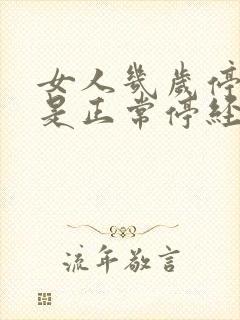 女人幾歲停
是正常停經
流年敬言